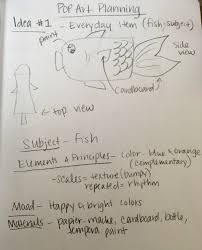 POP Art Planning
Idea #1 - Everyday item (fish=subject)
paint
side
view
Cardboard
← top view
Subject - fish
Elements & Principles - Color - blue & orange
(complementary)
- scales = texture (bumpy)
repeated = rhythm
Mood - Happy & bright colors
Materials - papier-mache, cardboard, bottle,
tempera paint